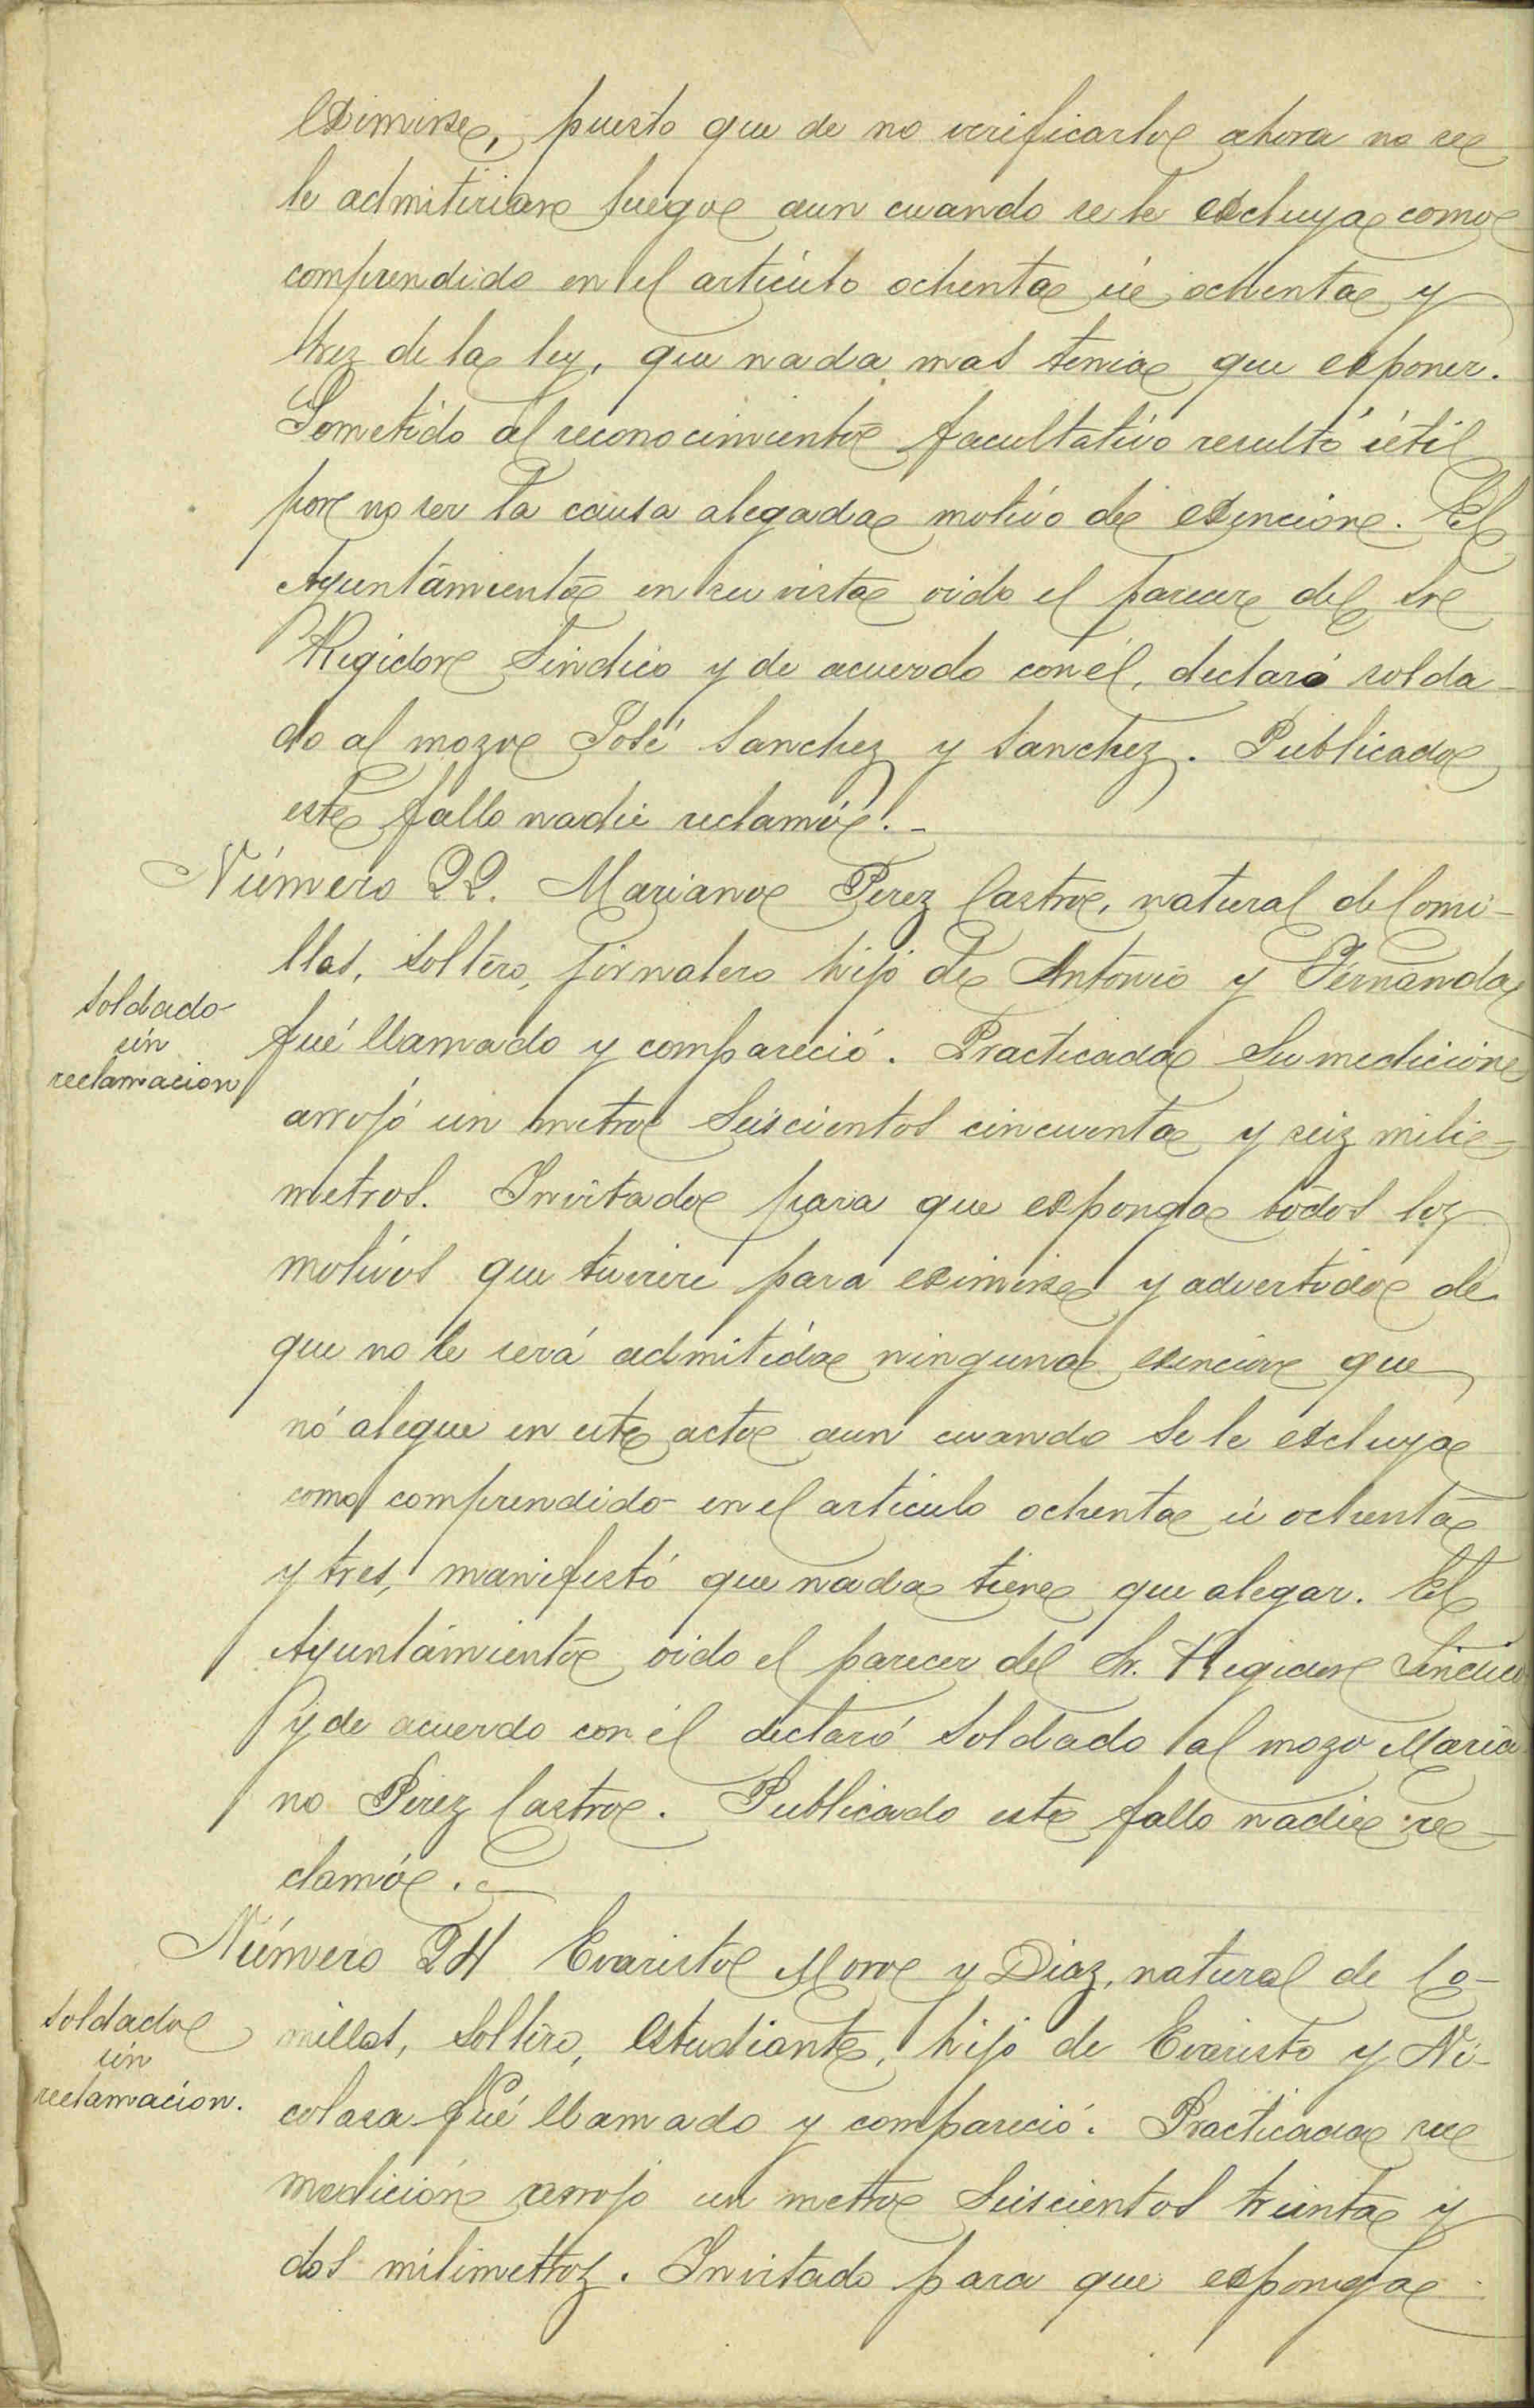 eximirse, puesto que de no verificarlo ahora no se
le admitirian luego aun cuando se le excluya como
comprendido en el artículo ochenta ú ochenta y
trez de la ley, que nada mas tenia que exponer.
Sometido al reconocimiento facultativo resultó útil
por no ser la causa alegada motivo de exencion. El
Ayuntamiento en su vista oido el parecer del Sr
Regidor Sindico y de acuerdo con él, declaró solda-
do al mozo José Sanchez y Sanchez. Publicado
este fallo nadie reclamó.-
Número 22. Mariano Perez Castro, natural de Comi-
llas, soltero, jornalero hijo de Antonio y Fernanda
Soldado
sin
reclamacion
fué llamado y compareció. Practicada su medicion
arrojó un metro seiscientos cincuenta y seiz mili-
metros. Invitado para que exponga todos loz
motivos que tuviere para eximirse y advertido de
que no le será admitida ninguna exencion que
nó alegue en este acto aun cuando se le excluya
como comprendido en el artículo ochenta ú ochenta
y tres, manifestó que nada tiene que alegar. El
Ayuntamiento oido el parecer del Sr. Regidor Sindico
y de acuerdo con él declaró soldado al mozo Maria
no Perez Castro. Publicado este fallo nadie re-
clamó.
Número 24 Evaristo Moro y Diaz, natural de Co-
millas, soltero, estudiante, hijo de Evaristo y Ni-
Soldado
sin
reclamacion.
colasa fué llamado y compareció. Practicada su
medición arrojo un metro seiscientos treinta y
dos milimetroz. Invitado para que exponga